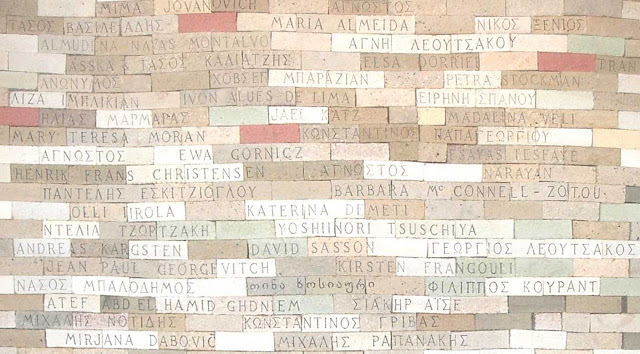 ΜΙΜΑ JOVANOVICH ΑΓΝΩΣΤΟΣ
ΤΑΣΟΣ ΒΑΣΙΛΕΙΑΔΗΣ MARIA ALMEIDA ΝΙΚΟΣ ΞΕΝΙΟΣ
ALMUDENA NAVAS MONTALVO ΑΓΝΗ ΛΕΟΥΤΣΑΚΟΥ
ΤΑΣΟΣ ΚΑΛΙΑΤΖΗΣ ELSA DORRIE
ΑΝΩΝΥΜΟΣ ΧΟΒΣΕΠ ΜΠΑΡΑΖΙΑΝ PETRA STOCKMAN
ΛΙΖΑ ΜΠΛΙΚΙΑΝ IVON ALUES DE LIMA ΕΙΡΗΝΗ ΣΠΑΝΟΥ
ΗΛΙΑΣ ΜΑΡΜΑΡΑΣ JAEL KATZ MADALINA VELI
MARY TERESA MORAN ΚΩΝΣΤΑΝΤΙΝΟΣ ΠΑΠΑΓΕΩΡΓΙΟΥ
ΑΓΝΩΣΤΟΣ EWA GORNICZ ESAYAS TESFAYE
HENRIK FRANS CHRISTENSEN ΑΓΝΩΣΤΟΣ NARAYAN
ΠΑΝΤΕΛΗΣ ΕΣΚΙΤΖΙΟΓΛΟΥ BARBARA McCONNELL-ZOTOU
OLLI TIROLA KATERINA DEMETI
ΝΤΕΛΙΑ ΤΖΩΡΤΖΑΚΗ YOSHIINORI TSUSCHIYA
ANDREAS KARGSTEN DAVID SASSON ΓΕΩΡΓΙΟΣ ΛΕΟΥΤΣΑΚΟΣ
JEAN PAUL GEORGEVITCH KIRSTEN FRANGOULI
ΝΑΣΟΣ ΜΠΑΛΟΔΗΜΟΣ ΦΙΛΙΠΠΟΣ ΚΟΥΡΑΝΤ
ATEF ABD EL HAMID GHDNIEM ΣΙΑΚΗΡ ΑΪΣΕ
ΜΙΧΑΛΗΣ ΝΟΤΙΔΗΣ ΚΩΝΣΤΑΝΤΙΝΟΣ ΓΡΙΒΑΣ
MIRJANA DABOVIČ ΜΙΧΑΛΗΣ ΠΑΠΑΝΑΚΗΣ